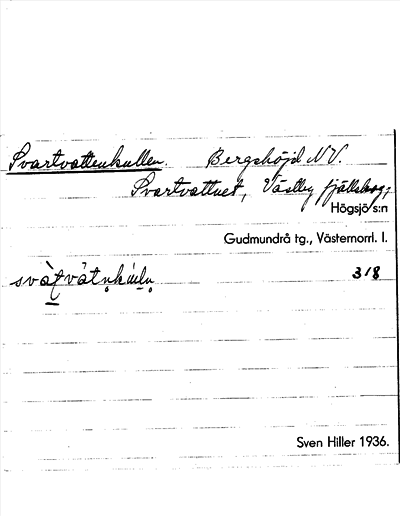 Svartvattenkullen. Bergshöjd N.V.
Svartvattnet, Västby fjällskog,
Högsjö s:n
Gudmundrå tg., Västernorrl. l.
3/8
Sven Hiller 1936.